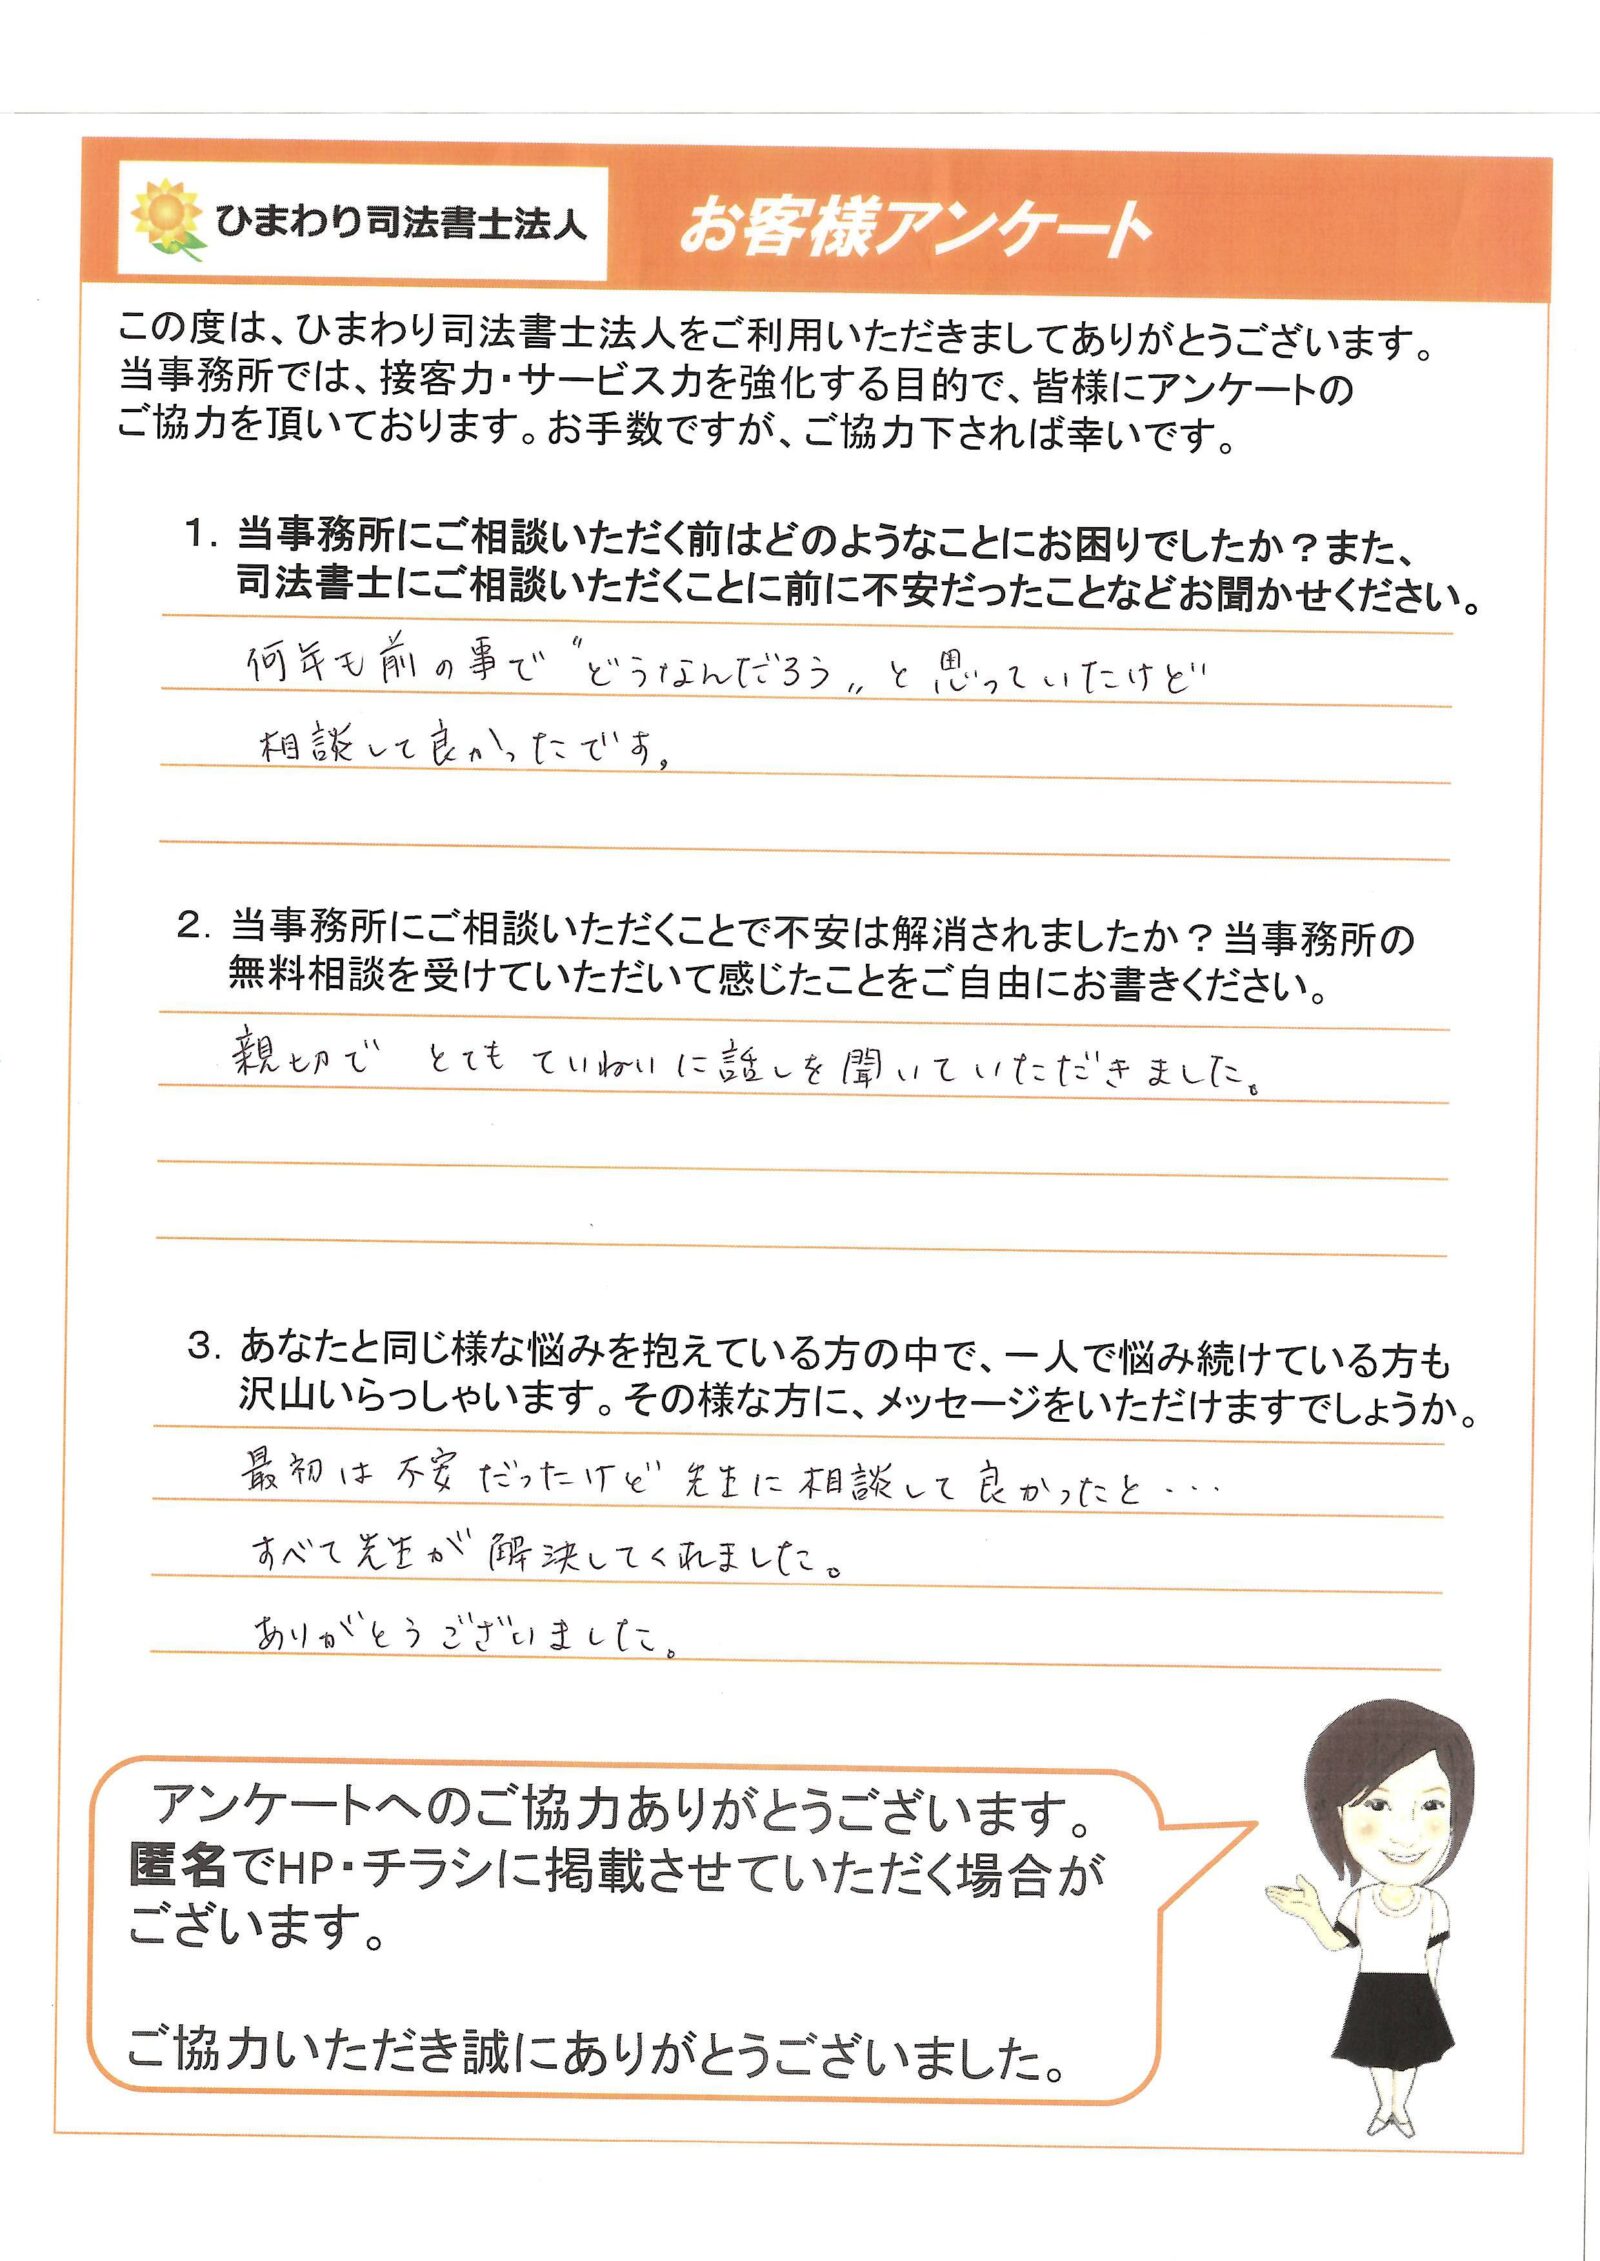 ひまわり司法書士法人
お客様アンケート
この度は、ひまわり司法書士法人をご利用いただきましてありがとうございます。
当事務所では、接客力・サービス力を強化する目的で、皆様にアンケートの
ご協力を頂いております。お手数ですが、ご協力下されば幸いです。
1. 当事務所にご相談いただく前はどのようなことにお困りでしたか？また、
司法書士にご相談いただくことに前に不安だったことなどお聞かせください。
何年も前の事で〝どうなんだろう〟と思っていたけど
相談して良かったです。
2. 当事務所にご相談いただくことで不安は解消されましたか？当事務所の
無料相談を受けていただいて感じたことをご自由にお書きください。
親切で とても ていねいに話しを聞いていただきました。
3. あなたと同じ様な悩みを抱えている方の中で、一人で悩み続けている方も
沢山いらっしゃいます。その様な方に、メッセージをいただけますでしょうか。
最初は不安だったけど先生に相談して良かったと・・・
すべて先生が解決してくれました。
ありがとうございました。
アンケートへのご協力ありがとうございます。
匿名でHP・チラシに掲載させていただく場合が
ございます。
ご協力いただき誠にありがとうございました。